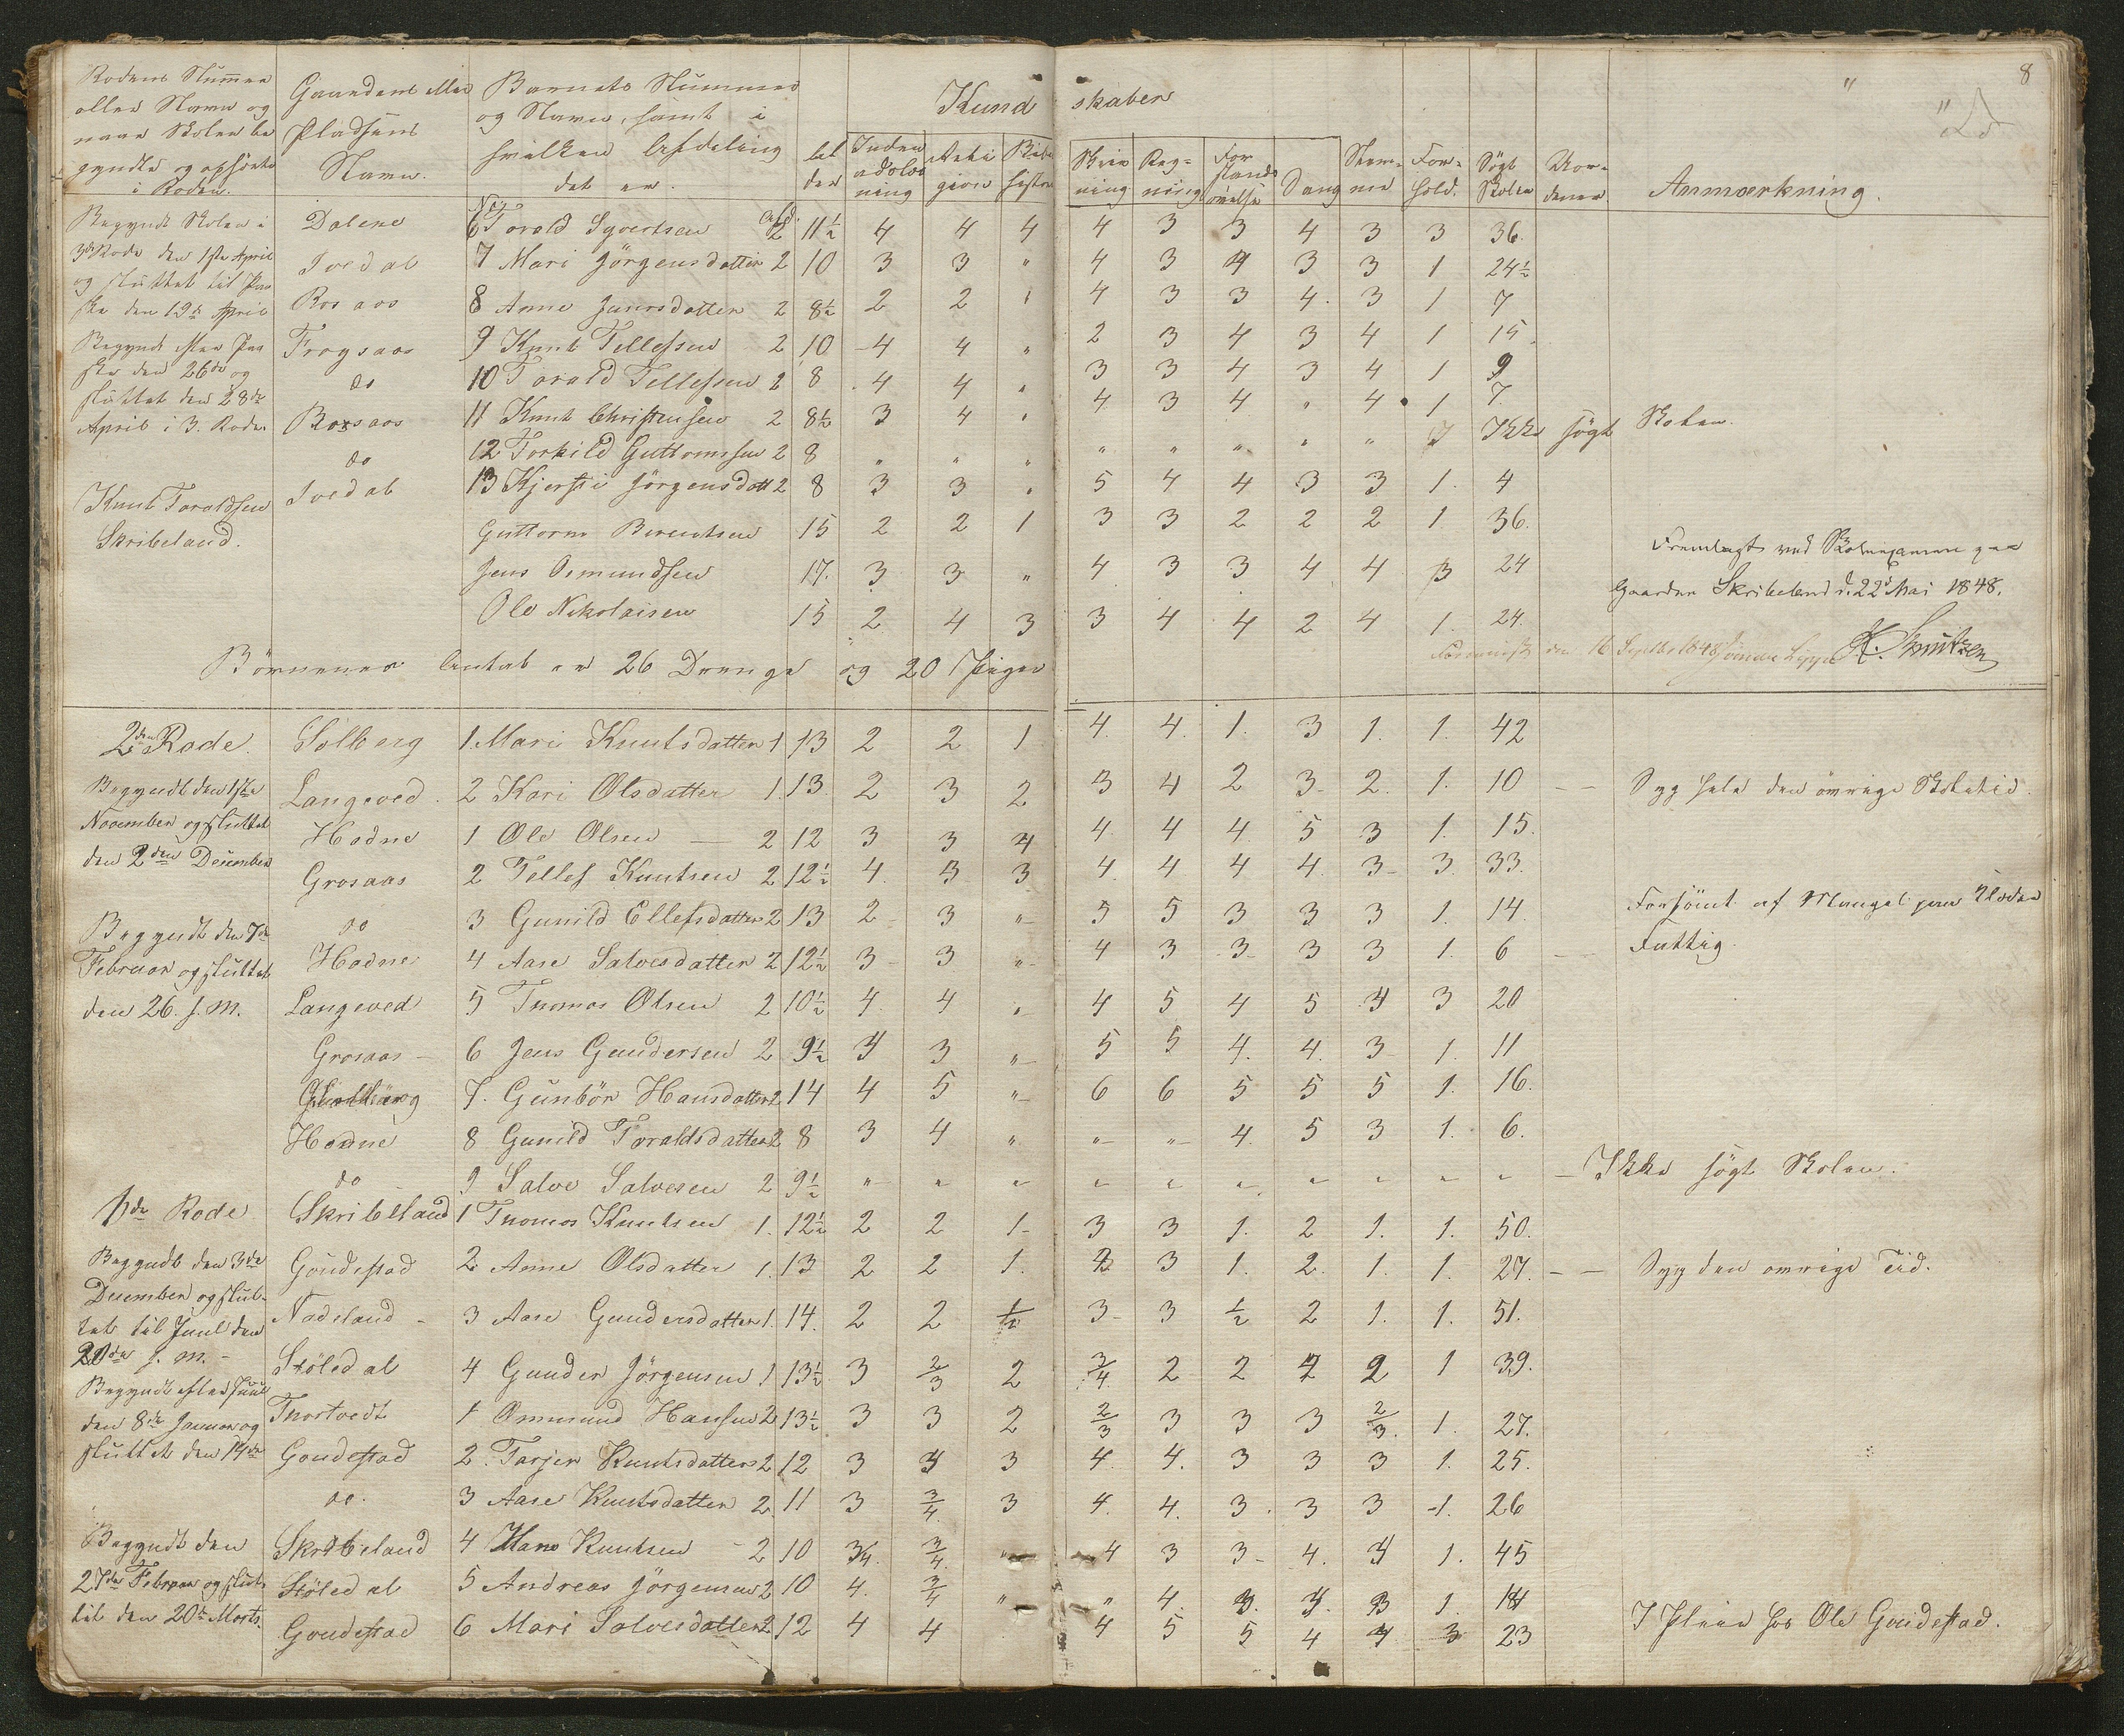 8
Rodens Nummer
eller Navn og
naar Skolen be
gyndte og ophørte
i Roden.
Gaardens eller
Pladsens
Navn.
Barnets Nummer
og Navn, samt i
hvilken Afdeling
det er.
Kund skaber
Al
der
Inden
adlæs
ning
Reli
gion
Bibel
histor
Skriv
ning
Reg-
ning
For
stands
øvelse
Sang
Nem-
me
For-
hold.
Søgt
Skolen
Anmærkning.
Begyndt Skolen i
3die Rode den 1ste April
og sluttet til Paa
ske den 19de April
Begyndt efter Paa
ske den 26de og
sluttet den 28de
April i 3. Rode
Knut Toraldsen
Skribeland.
Dalene No 6 Torald Syvertsen afd. 2 11½ 4 4 4 4 3 3 4 3 3 36.
Tvedal 7 Mari Jörgensdatter 2 10 3 3 " 4 3 4 3 3 1 24½
Rosaas 8 Anne Jensdatter 2 8½ 2 2 " 4 3 3 4. 3 1 7
Frogsaas 9 Knut Tellefsen 2 10 4 4 " 2 3 4 3 4 1 15.
do 10 Torald Tellefsen 2 8 4 4 " 3 3 4 3 4 1 9
Rossaas 11 Knut Christensen 2 8½ 3 4 " 4 3 4 " 4 1 7.
do 12 Torkild Guttormsen 2 8 " " " " " " " " Ikke søgt Skolen.
Tvedal 13 Kjersti Jörgensdatt 2 8 3 3 " 5 4 4 3 3 1. 4
Guttorm Berentsen 15 2 2 1 3 3 2 2 2 1. 36.
Jens Osmundsen 17. 3 3 " 4 3 3 4 4 3 24
Ole Nikolaisen 15 2 4 3 3 4 4 2 4 1. 24.
Fremlagt ved Skoleexamen paa
Gaarden Skribeland d. 22d Mai 1848.
K. Knutzen
Börnenes Antal er 26 Drenge og 20 Piger
2den Rode. Solberg 1. Mari Knutsdatter 1 13 2 2 1 4. 4. 1. 3 1. 1. 42
Begyndt den 1ste
November og sluttet
den 2den December
Langeved 2 Kari Olsdatter 1. 13. 2 3 2 3 4 2 3 2. 1. 10 — Syg hele den övrige Skoletid.
Hodne 1 Ole Olsen — 2 12 3 3 4 4. 4 4. 5 3 1. 15.
Grosaas 2 Tellef Knutsen 2 12½ 4. 3 3 4. 4 4 4. 3 3. 33.
do 3 Gunild Ellefsdatter 2 13 2 3 " 5 5 3 3 3 1. 14. Forsömt af Mangel paa Klæder
Begyndt den 7de
Februar og sluttet
den 26. s. M.
Hodne 4 Aase Salvesdatter 2 12½ 3 3 " 4 3 3 3 3 1. 6 — Fattig.
Langeved 5 Thomas Olsen 2 10½ 4. 4 " 4 5 4 5 4 3 20
Grosaas 6 Jens Gundersen 2 9½ 4 3 " 5 5 4. 4. 3 1. 11
7. Gunbör Hansdatter 2 14 4 5 " 6 6 5 5 5 1. 16.
Hodne 8 Gunild Toraldsdatter 2 8 3 4 " " " 4. 5 3 1. 6.
do 9 Salve Salvesen 2 9½ " " " " " " " " " " — Ikke søgt Skolen.
1ste Rode Skribeland 1 Thomas Knutsen 1. 12½ 2 2 1 3 3 1. 2 1. 1. 50.
Begyndt den 3die
December og slut-
tet til Juul den
20de s. M.
Begyndt efter Juul
den 8de Januar og
sluttet den 19de
Goudestad 2 Anne Olsdatter 1. 13 2 2 1. 2 3 1. 2. 1. 1. 27. — Syg den övrige Tid.
Nadeland 3 Aase Gundersdatter 1. 14. 2 2 ½ 3 3 ½ 2 1. 1. 51.
Stöledal 4 Gunder Jörgensen 1 13½ 3 2/3 2 3/4 2 2 2 2 1 39.
Thortvedt 1 Ommund Hansen 2 13½ 3 3 2 2/3 3 3 3 2/3. 1. 27.
Goudestad 2 Tarjer Knutsdatter 2 12 3 4 3 4. 4. 3 3 3 1. 25.
do. 3 Aase Knutsdatter 2. 11 3 3/4 3 4. 4. 3. 3 3 1. 26
Begyndt den
27de Februar og slut-
tet den 20de Marts.
Skribeland 4 Hans Knutsen 2 10 3/4. 3/4. " 4 3 3 4. 4 1. 45
Stöledal 5 Andreas Jörgensen 2 10 4. 3/4 " " 4. 3. 4. 3 1. 14
Goudestad 6 Mari Salvesdatter 2 12 4 4 4 5 5 4 4 3 23 I Pleie hos Ole Goudestad.